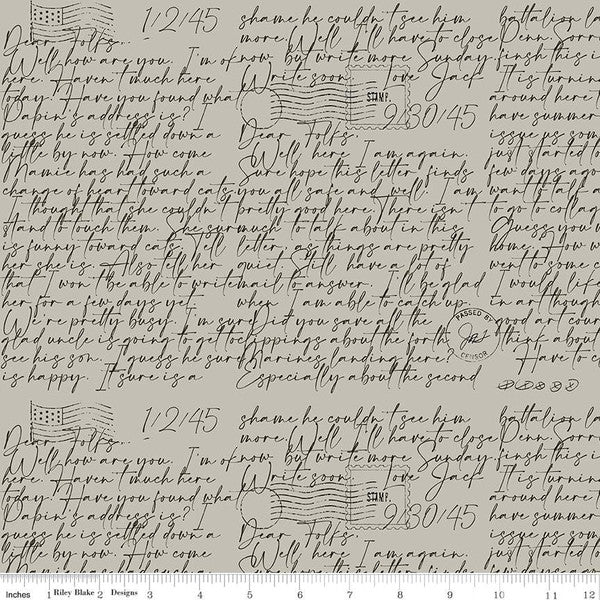 1/2/45
Dear Folks..
Well, how are you. I'm ok
here. Haven't much here
today. Have you found what
Papin's address is?
guess he is settled down a
little by now. How come
Mamie has had such a
change of heart toward cats,
I thought that she couldn't
stand to touch them. She sure
is funny toward cats. Tell
her she is. Also tell her
that I won't be able to write
her for a few days yet.
We're pretty busy. I'm sure
glad uncle is going to get to
see his son. I guess he sure
is happy. It sure is a
shame he couldn't see him
more. Well, I'll have to close
now but write more Sunday.
Write soon. love Jack
STAMP.
9/30/45
Dear Folks.
Well, here I am again.
Sure hope this letter finds
you all safe and well. I am
pretty good here. There isn't
much to talk about in this
letter, as things are pretty
quiet. Still have a lot of
mail to answer. I'll be glad
when I am able to catch up.
Did you save all the
clippings about the forth
Marines landing here?
Especially about the second
battalion la
Penn. Sorry
finish this
It is turnin
around here t
have summer
issue us som
just started to
few days ago
want to talk a
to go to collag
Guess you w
home. How w
went to some c
would, I'd li
in art though
good art cour
think about
Have to cl
PASSED BY
CENSOR
1/2/45
Dear Folks..
Well, how are you. I'm ok
here. Haven't much here
today. Have you found what
Papin's address is?
guess he is settled down a
little by now. How come
shame he couldn't see him
more. Well, I'll have to close
now but write more Sunday.
Write soon. love Jack
STAMP.
9/30/45
Dear Folks.
Well, here I am again.
battalion la
Penn. Sorry
finish this
It is turnin
around here t
have summer
issue us som
just started to
Inches 1 Riley Blake 2 Designs 3 4 5 6 7 8 9 10 11 12